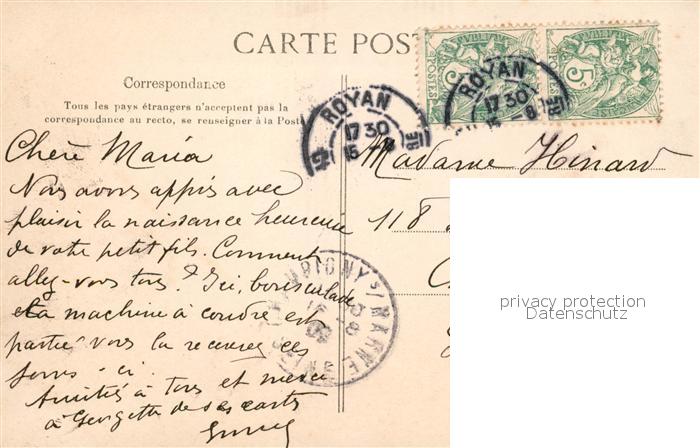 CARTE POST
Correspondance
Tous les pays étrangers n'acceptent pas la
correspondance au recto, se renseigner à la Poste
POSTES 5c
5c POSTES
ROYAN
17 30
15
ROYAN
17 30
15
Chère Maria
Nous avons appris avec
plaisir la naissance heureuse
de votre petit fils. Comment
allez-vous tous? Ici,
la machine à coudre est
partie vous la recevrez ces
jours-ci.
Amitiés à tous et merci
à Georgette de ses cartes
Madame Hinard
118
S/MARNE
privacy protection
Datenschutz